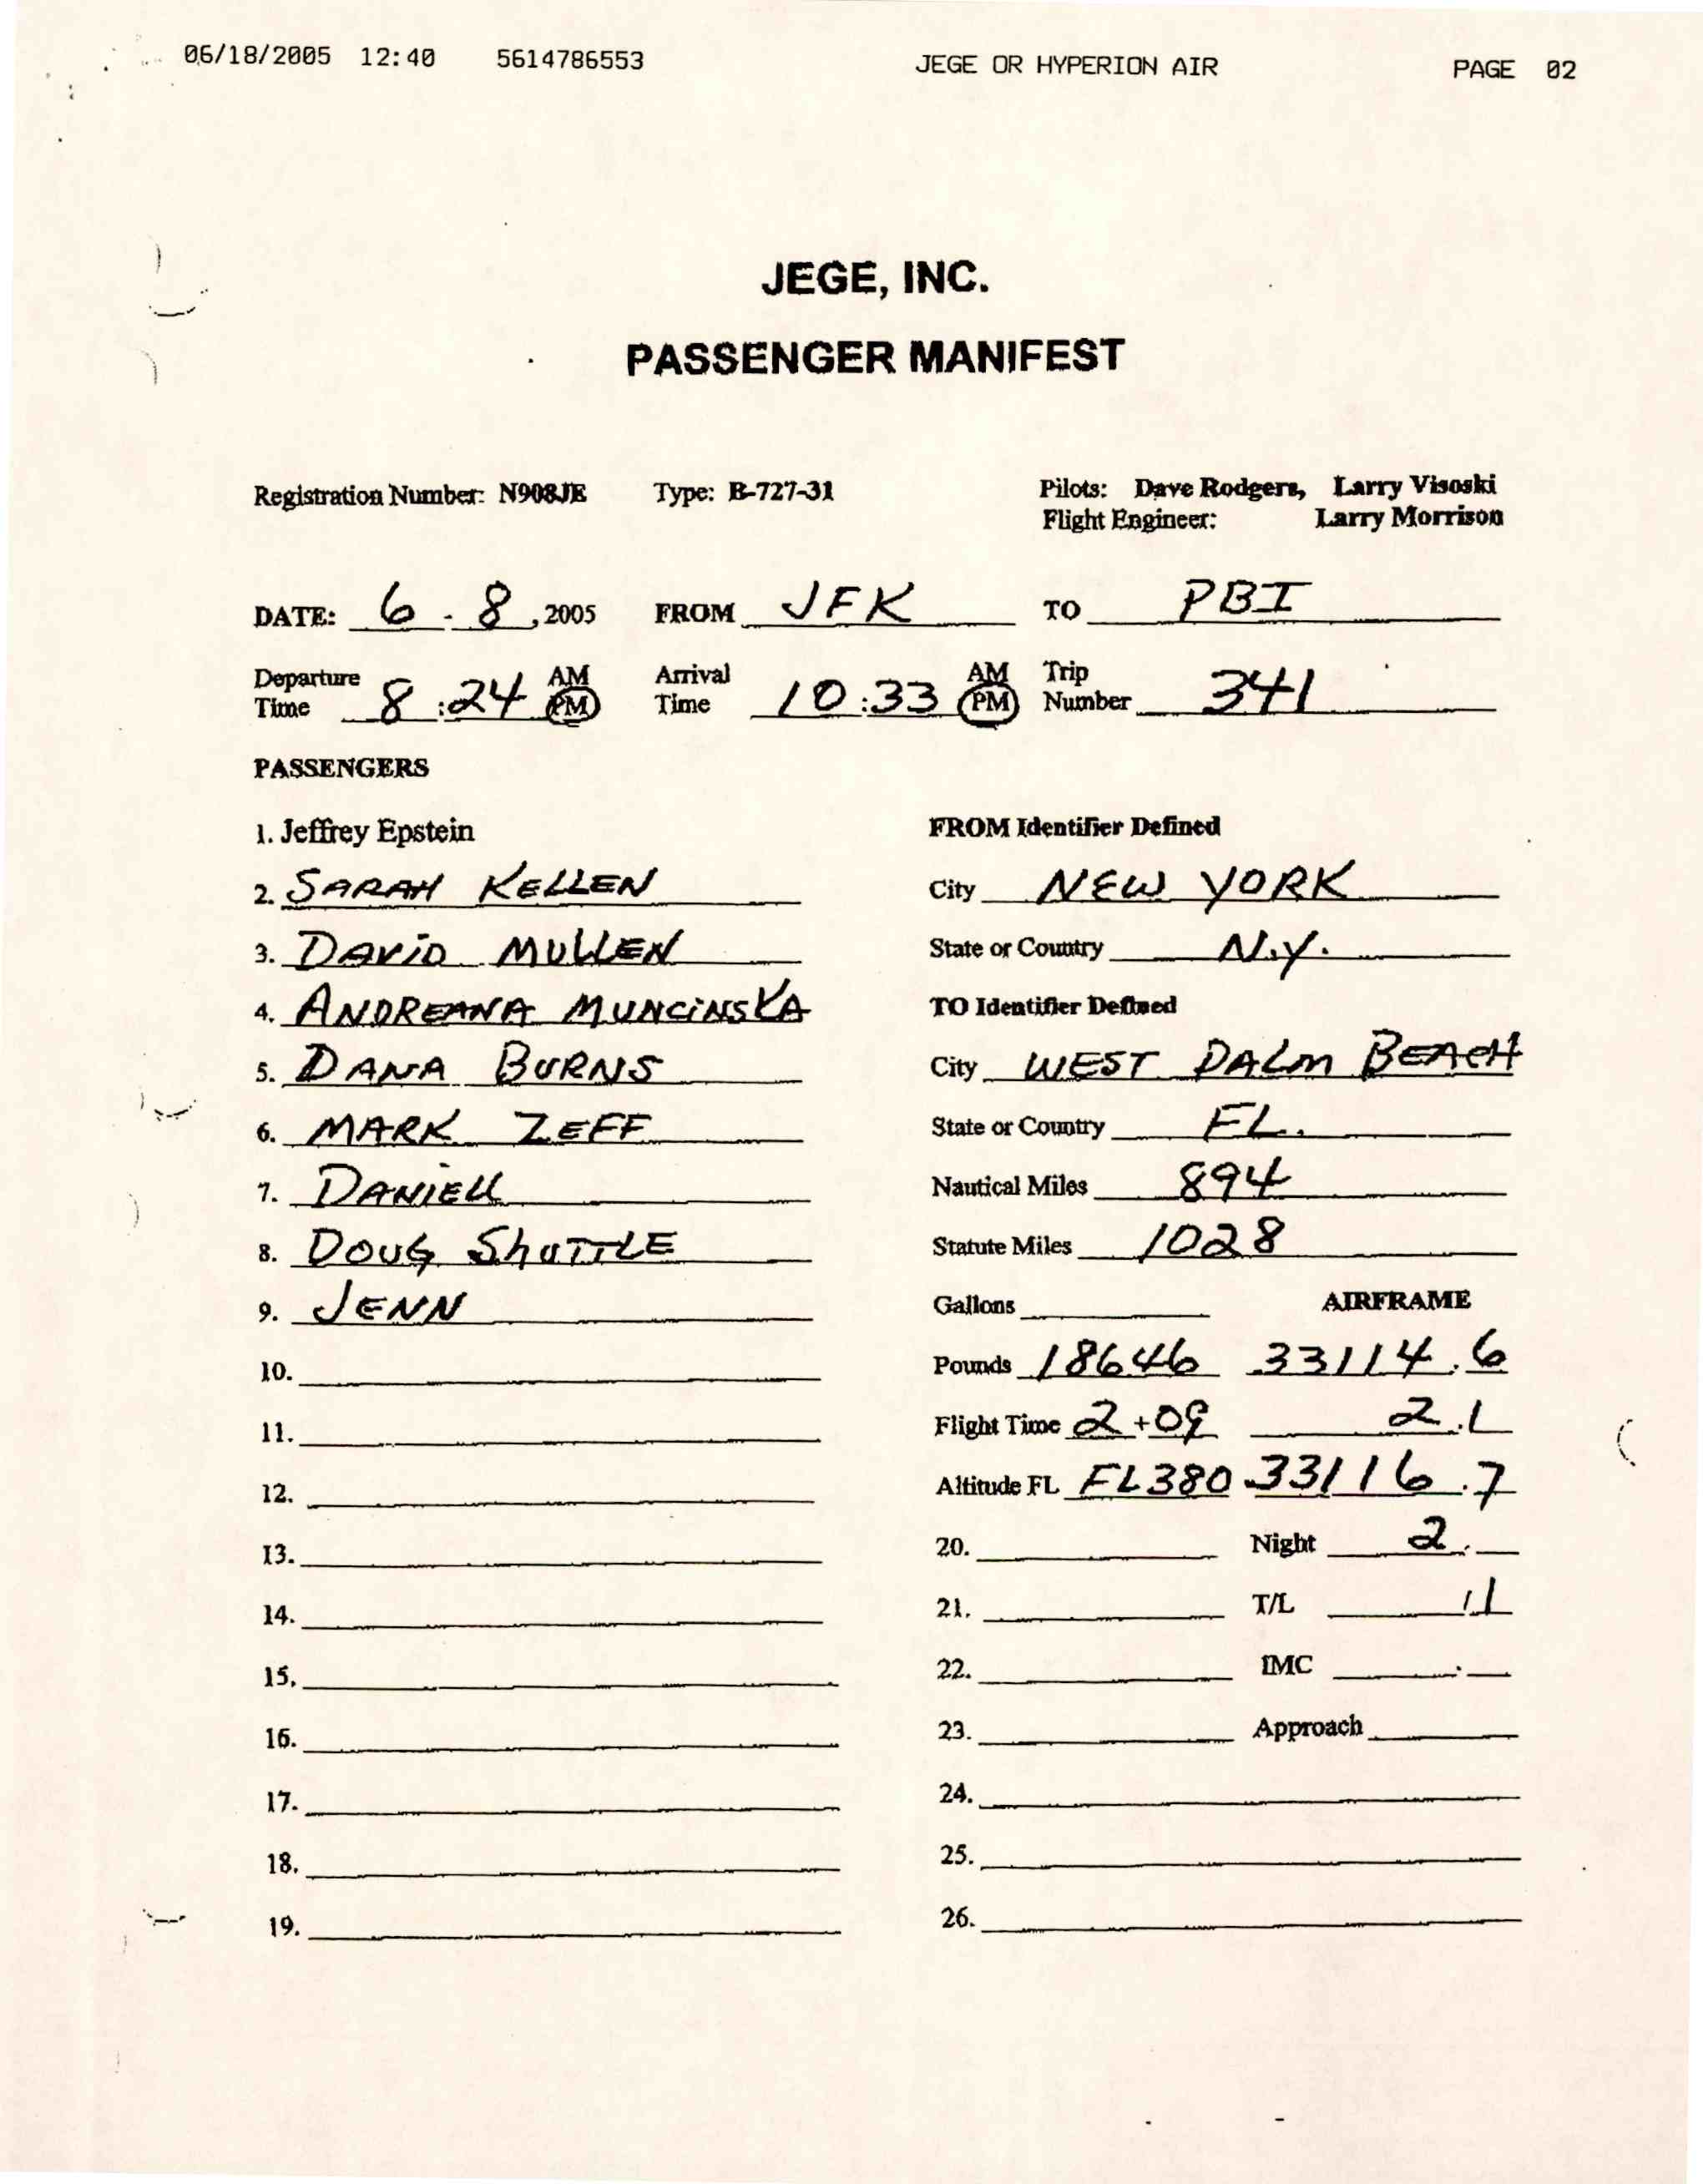 06/18/2005 12:40 5614786553 JEGE OR HYPERION AIR PAGE 02
JEGE, INC.
PASSENGER MANIFEST
Registration Number: N908JE Type: B-727-31 Pilots: Dave Rodgers, Larry Visoski
Flight Engineer: Larry Morrison
DATE: 6 - 8, 2005 FROM JFK TO PBI
Departure Time 8:24 AM PM Arrival Time 10:33 AM PM Trip Number 341
PASSENGERS
1. Jeffrey Epstein
2. SARAH KELLEN
3. DAVID MULLEN
4. ANDREANA MUNCINSKA
5. DANA BURNS
6. MARK ZEFF
7. DANIELL
8. DOUG ShUTTLE
9. JENN
10.
11.
12.
13.
14.
15.
16.
17.
18.
19.
FROM Identifier Defined
City NEW YORK
State or Country N.Y.
TO Identifier Defined
City WEST PALM BEACH
State or Country FL.
Nautical Miles 894
Statute Miles 1028
Gallons AIRFRAME
Pounds 18646 33114.6
Flight Time 2+09 2.1
Altitude FL FL380 33116.7
20. Night 2.
21. T/L 1.1
22. IMC .
23. Approach
24.
25.
26.